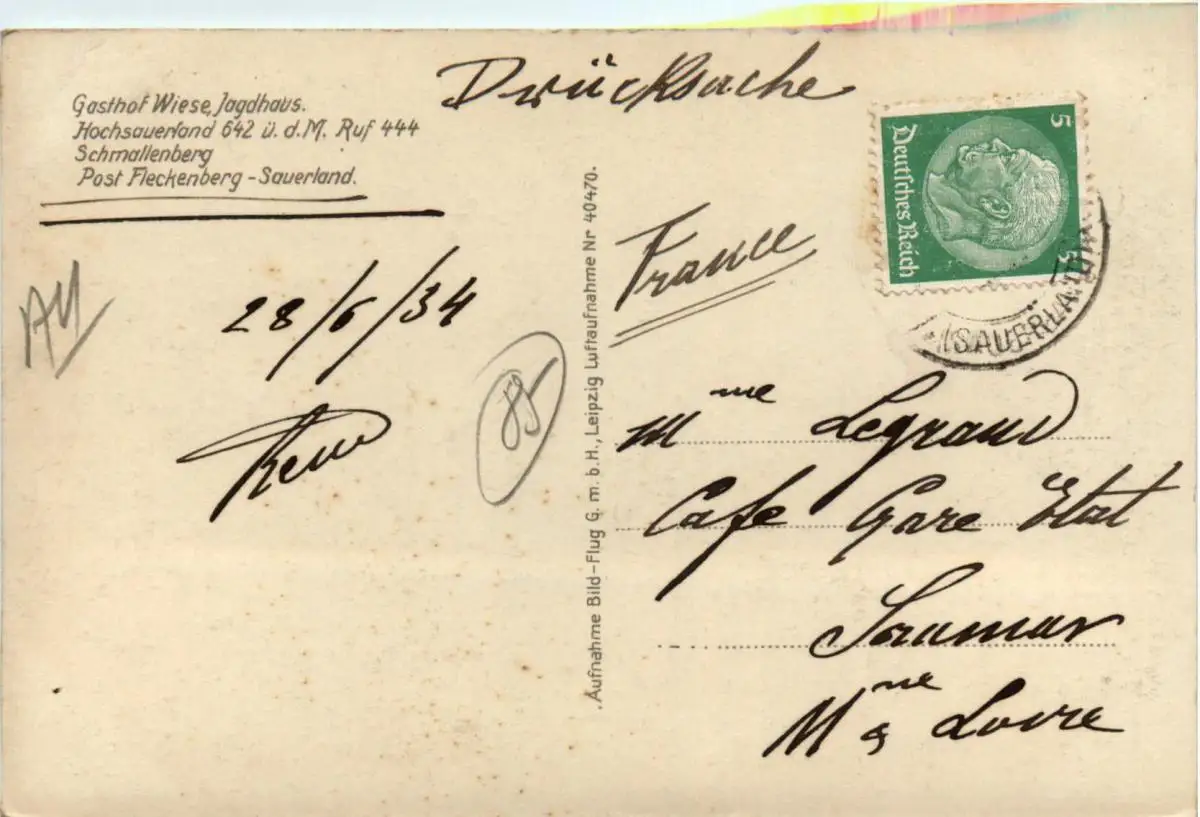 Drücksache
Gasthof Wiese, Jagdhaus.
Hochsauerland 642 ü. d. M. Ruf 444
Schmallenberg
Post Fleckenberg - Sauerland.
28/6/34
Aufnahme Bild-Flug G. m. b. H., Leipzig Luftaufnahme Nr 40470.
5 5
Deutsches Reich
(SAUERLAND)
France
Mme Legrand
Cafe Gare Etat
Saumur
Mne & Loire